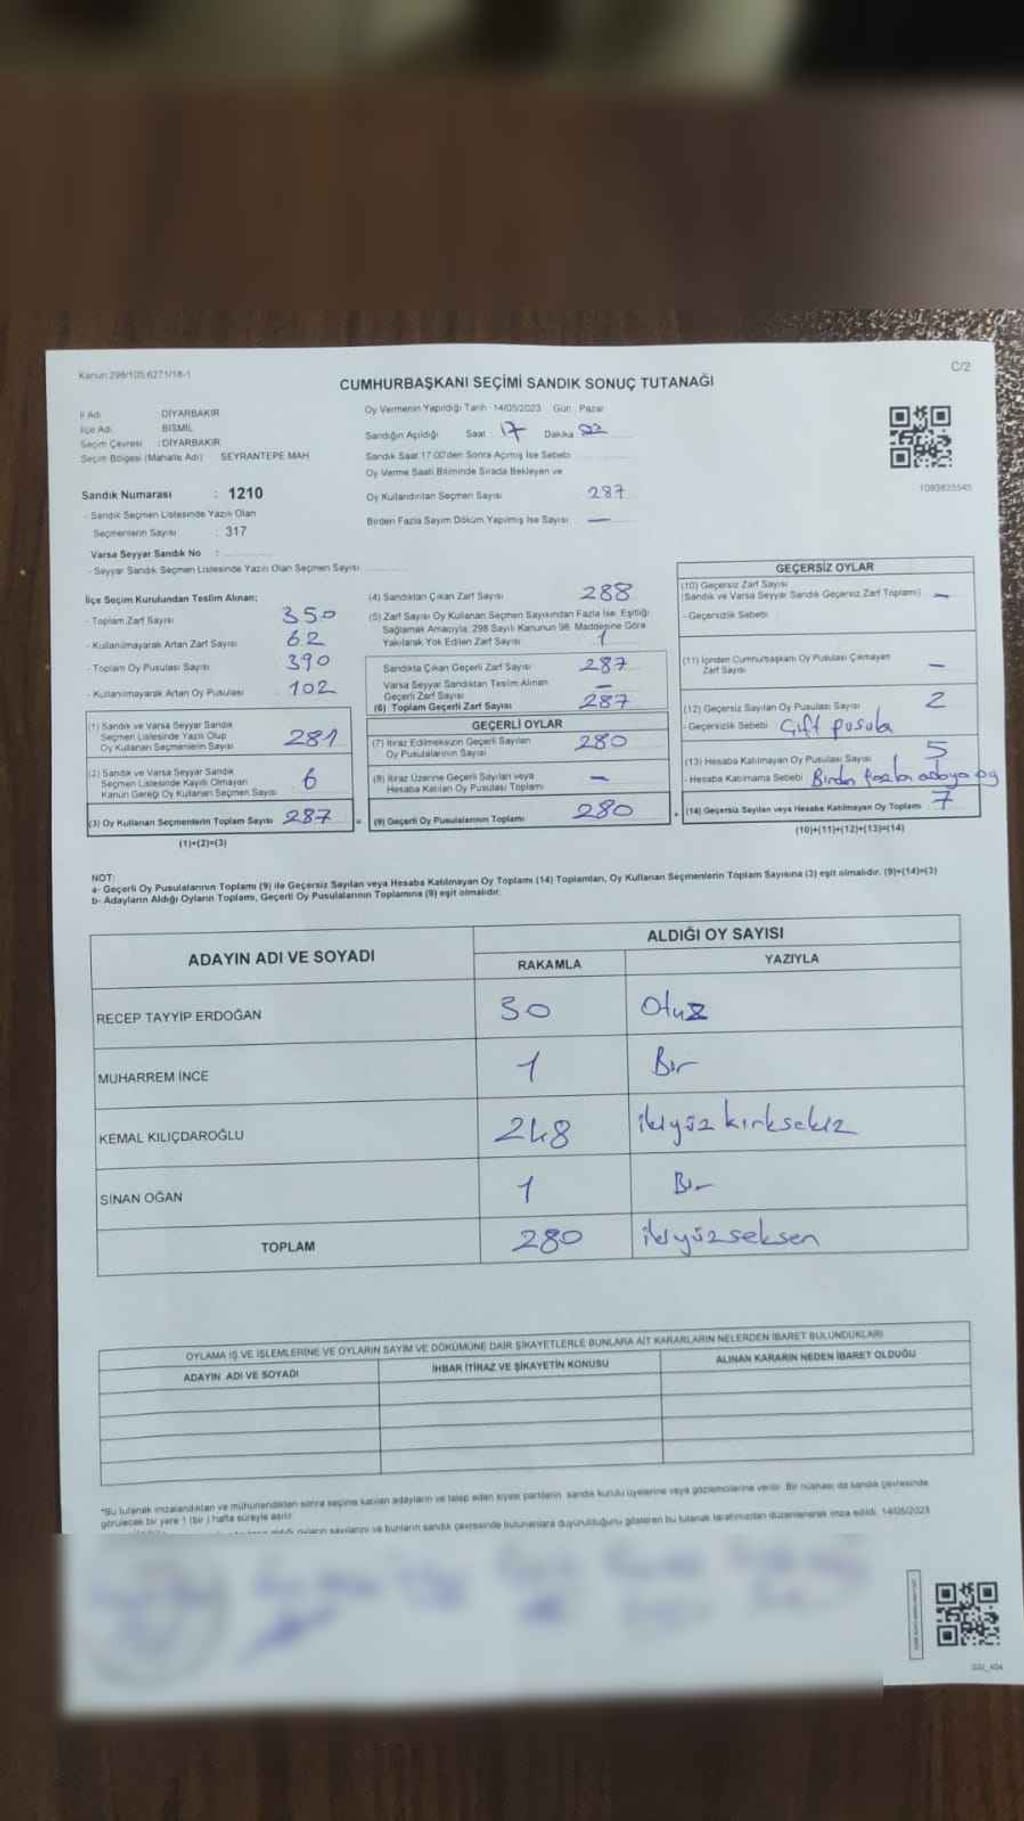 Kanun 298/105 6271/18-1
C/2
CUMHURBAŞKANI SEÇİMİ SANDIK SONUÇ TUTANAĞI
İl Adı : DİYARBAKIR
İlçe Adı : BİSMİL
Seçim Çevresi : DİYARBAKIR
Seçim Bölgesi (Mahalle Adı) SEYRANTEPE MAH
Sandık Numarası : 1210
- Sandık Seçmen Listesinde Yazılı Olan
Seçmenlerin Sayısı : 317
Varsa Seyyar Sandık No :
- Seyyar Sandık Seçmen Listesinde Yazılı Olan Seçmen Sayısı
Oy Vermenin Yapıldığı Tarih 14/05/2023 Gün : Pazar
Sandığın Açıldığı Saat : 17 Dakika
Sandık Saat 17.00'den Sonra Açılmış İse Sebebi
Oy Verme Saati Bitiminde Sırada Bekleyen ve
Oy Kullandırılan Seçmen Sayısı 287
Birden Fazla Sayım Döküm Yapılmış İse Sayısı —
1093835545
İlçe Seçim Kurulundan Teslim Alınan;
- Toplam Zarf Sayısı 350
- Kullanılmayarak Artan Zarf Sayısı 62
- Toplam Oy Pusulası Sayısı 390
- Kullanılmayarak Artan Oy Pusulası 102
(1) Sandık ve Varsa Seyyar Sandık
Seçmen Listesinde Yazılı Olup
Oy Kullanan Seçmenlerin Sayısı 281
(2) Sandık ve Varsa Seyyar Sandık
Seçmen Listesinde Kayıtlı Olmayan
Kanun Gereği Oy Kullanan Seçmen Sayısı 6
(3) Oy Kullanan Seçmenlerin Toplam Sayısı 287
(1)+(2)=(3)
(4) Sandıktan Çıkan Zarf Sayısı 288
(5) Zarf Sayısı Oy Kullanan Seçmen Sayısından Fazla İse, Eşitliği
Sağlamak Amacıyla, 298 Sayılı Kanunun 98. Maddesine Göre
Yakılarak Yok Edilen Zarf Sayısı 1
Sandıkta Çıkan Geçerli Zarf Sayısı 287
Varsa Seyyar Sandıktan Teslim Alınan
Geçerli Zarf Sayısı —
(6) Toplam Geçerli Zarf Sayısı 287
GEÇERLİ OYLAR
(7) İtiraz Edilmeksizin Geçerli Sayılan
Oy Pusulalarının Sayısı 280
(8) İtiraz Üzerine Geçerli Sayılan veya
Hesaba Katılan Oy Pusulası Toplamı —
= (9) Geçerli Oy Pusulalarının Toplamı 280
GEÇERSİZ OYLAR
(10) Geçersiz Zarf Sayısı
(Sandık ve Varsa Seyyar Sandık Geçersiz Zarf Toplamı) —
- Geçersizlik Sebebi
(11) İçinden Cumhurbaşkanı Oy Pusulası Çıkmayan
Zarf Sayısı —
(12) Geçersiz Sayılan Oy Pusulası Sayısı 2
- Geçersizlik Sebebi Çift pusula
(13) Hesaba Katılmayan Oy Pusulası Sayısı 5
- Hesaba Katılmama Sebebi Birden fazla adaya oy
+ (14) Geçersiz Sayılan veya Hesaba Katılmayan Oy Toplamı 7
(10)+(11)+(12)+(13)=(14)
NOT:
a- Geçerli Oy Pusulalarının Toplamı (9) ile Geçersiz Sayılan veya Hesaba Katılmayan Oy Toplamı (14) Toplamları, Oy Kullanan Seçmenlerin Toplam Sayısına (3) eşit olmalıdır. (9)+(14)=(3)
b- Adayların Aldığı Oyların Toplamı, Geçerli Oy Pusulalarının Toplamına (9) eşit olmalıdır.
ADAYIN ADI VE SOYADI
ALDIĞI OY SAYISI
RAKAMLA YAZIYLA
RECEP TAYYİP ERDOĞAN 30 Otuz
MUHARREM İNCE 1 Bir
KEMAL KILIÇDAROĞLU 248 ikiyüz kırksekiz
SİNAN OĞAN 1 Bir
TOPLAM 280 ikiyüzseksen
OYLAMA İŞ VE İŞLEMLERİNE VE OYLARIN SAYIM VE DÖKÜMÜNE DAİR ŞİKAYETLERLE BUNLARA AİT KARARLARIN NELERDEN İBARET BULUNDUKLARI
ADAYIN ADI VE SOYADI İHBAR İTİRAZ VE ŞİKAYETİN KONUSU ALINAN KARARIN NEDEN İBARET OLDUĞU
*Bu tutanak imzalandıktan ve mühürlendikten sonra seçime katılan adayların ve talep eden siyasi partilerin sandık kurulu üyelerine veya gözlemcilerine verilir. Bir nüshası da sandık çevresinde
görülecek bir yere 1 (bir) hafta süreyle asılır.
oyların sayılarını ve bunların sandık çevresinde bulunanlara duyurulduğunu gösteren bu tutanak tarafımızdan düzenlenerek imza edildi. 14/05/2023